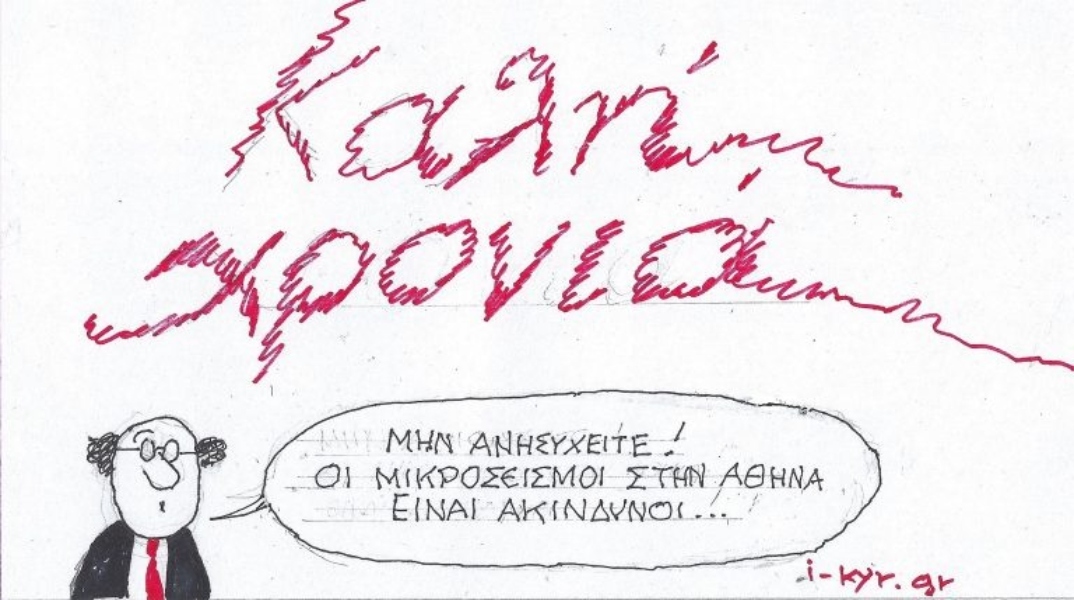 Καλή
χρονιά
ΜΗΝ ΑΝΗΣΥΧΕΙΤΕ!
ΟΙ ΜΙΚΡΟΣΕΙΣΜΟΙ ΣΤΗΝ ΑΘΗΝΑ
ΕΙΝΑΙ ΑΚΙΝΔΥΝΟΙ...
i-kyr.gr